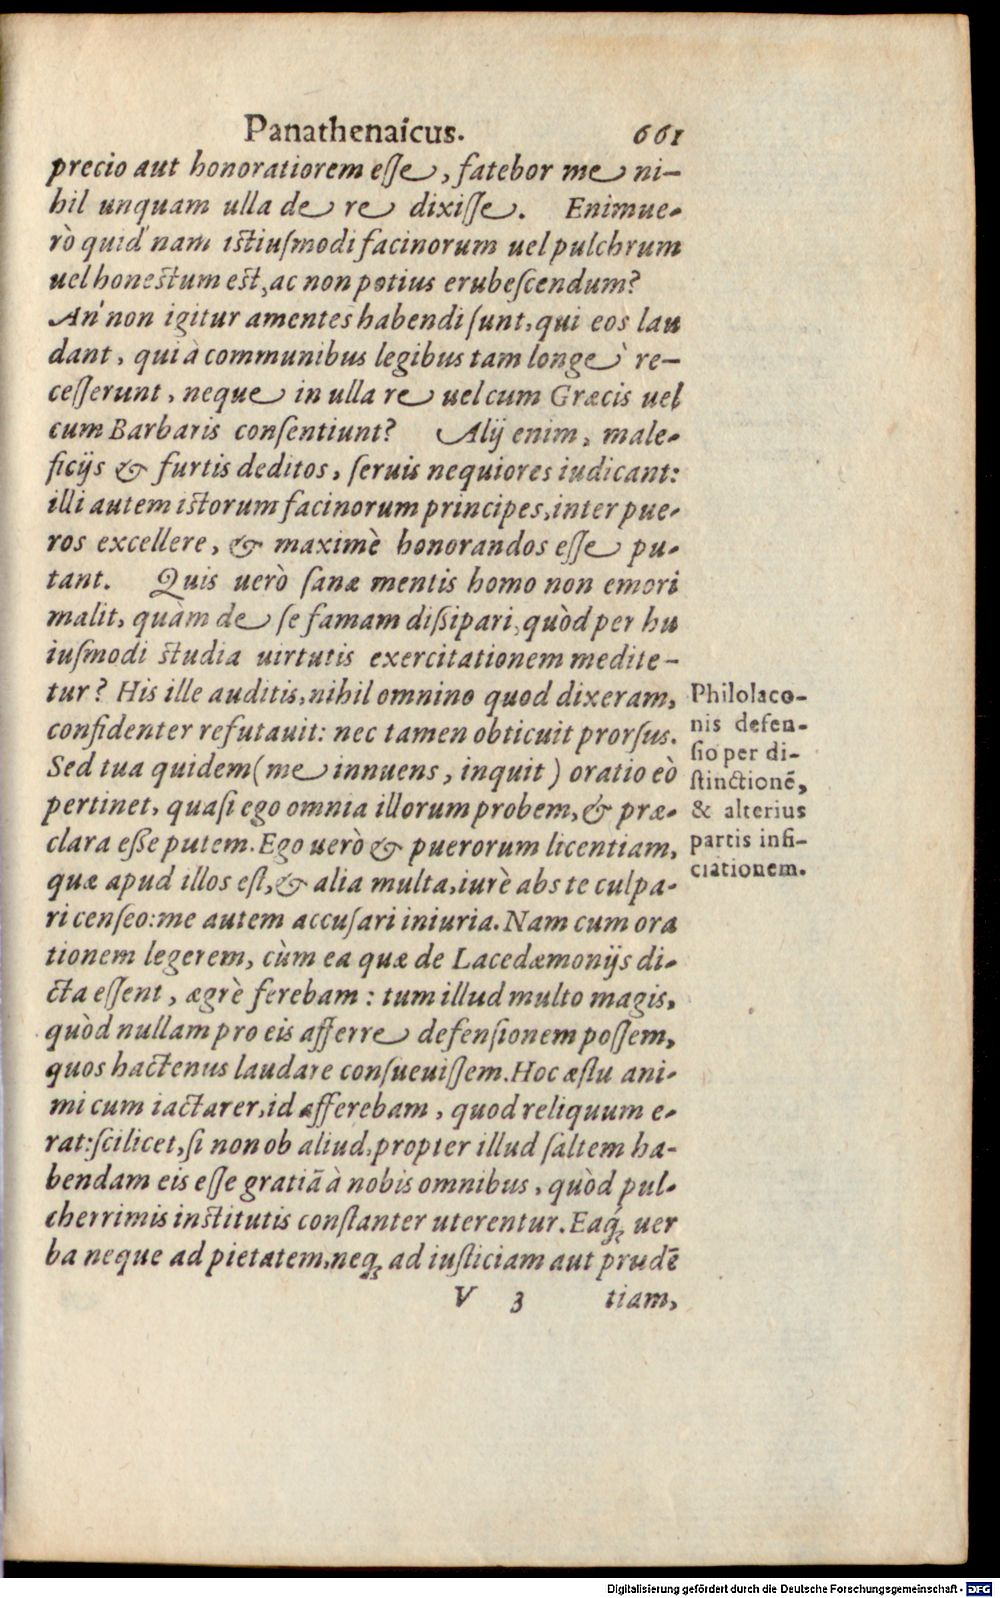 Panathenaicus. 661
precio aut honoratiorem eſſe, fatebor me ni-
hil unquam ulla de re dixiſſe. Enimue-
rò quid' nam iſtiuſmodi facinorum uel pulchrum
uel honeſtum eſt, ac non potius erubeſcendum?
An' non igitur amentes habendi ſunt, qui eos lau
dant, qui à communibus legibus tam longè re-
ceſſerunt, neque in ulla re uel cum Græcis uel
cum Barbaris conſentiunt? Alij enim, male-
ficijs & furtis deditos, ſeruis nequiores iudicant:
illi autem iſtorum facinorum principes, inter pue-
ros excellere, & maximè honorandos eſſe pu-
tant. Quis uerò ſanæ mentis homo non emori
malit, quàm de ſe famam diſsipari, quòd per hu
iuſmodi ſtudia uirtutis exercitationem medite-
tur? His ille auditis, nihil omnino quod dixeram,
confidenter refutauit: nec tamen obticuit prorſus.
Sed tua quidem (me innuens, inquit) oratio eò
pertinet, quaſi ego omnia illorum probem, & præ-
clara eſſe putem. Ego uerò & puerorum licentiam,
quæ apud illos eſt, & alia multa, iurè abs te culpa-
ri cenſeo: me autem accuſari iniuria. Nam cum ora
tionem legerem, cùm ea quæ de Lacedæmonijs di-
cta eſſent, ægrè ferebam: tum illud multo magis,
quòd nullam pro eis afferre defenſionem poſſem,
quos hactenus laudare conſueuiſſem. Hoc æſtu ani-
mi cum iactarer, id afferebam, quod reliquum e-
rat: ſcilicet, ſi non ob aliud, propter illud ſaltem ha-
bendam eis eſſe gratiã à nobis omnibus, quòd pul-
cherrimis inſtitutis conſtanter uterentur. Eaq́; uer
ba neque ad pietatem, neq; ad iuſticiam aut prudẽ
V 3 tiam,
Philolaco-
nis defen-
ſio per di-
ſtinctionẽ,
& alterius
partis infi-
ciationem.
Digitalisierung gefördert durch die Deutsche Forschungsgemeinschaft - DFG